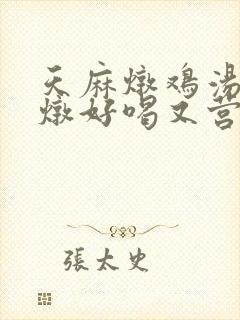 天麻燉鸡湯
燉好喝又营
張太史